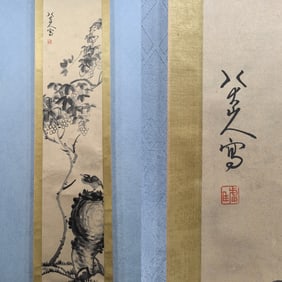 八大山人寫
八大山人寫